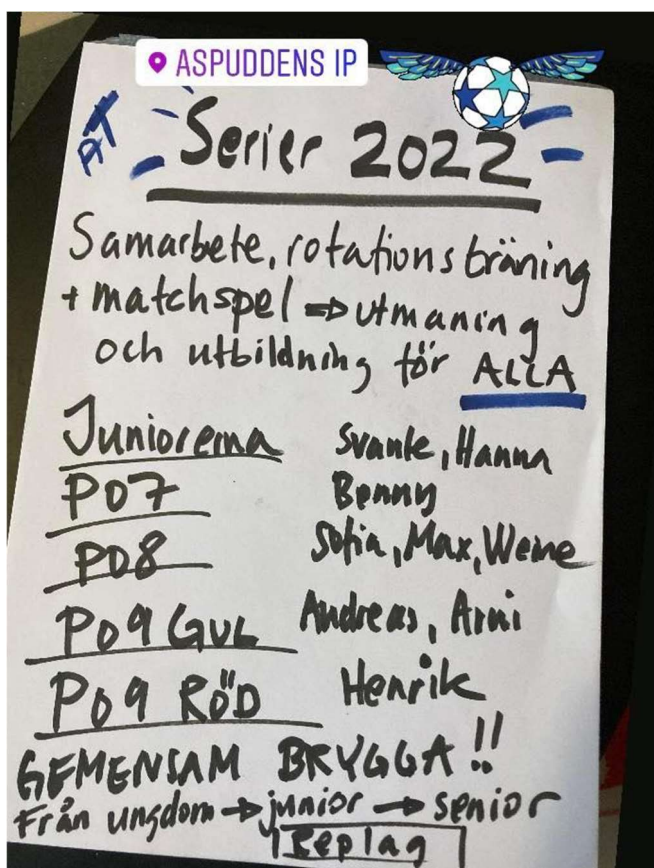 ASPUDDENS IP
AT
Serier 2022
Samarbete, rotationsträning
+ matchspel → utmaning
och utbildning för ALLA
Juniorerna Svante, Hanna
P07 Benny
P08 Sofia, Max, Weine
P09 GUL Andreas, Arni
P09 RÖD Henrik
GEMENSAM BRYGGA!!
Från ungdom → junior → senior
Replag